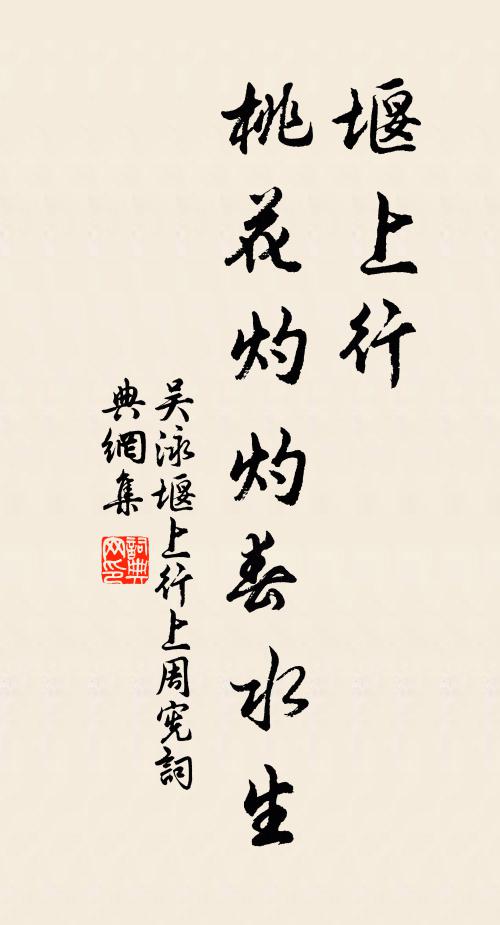 堰上行
桃花灼灼春水生
吴泳堰上行上周宪詞
典網集
詞典
网印